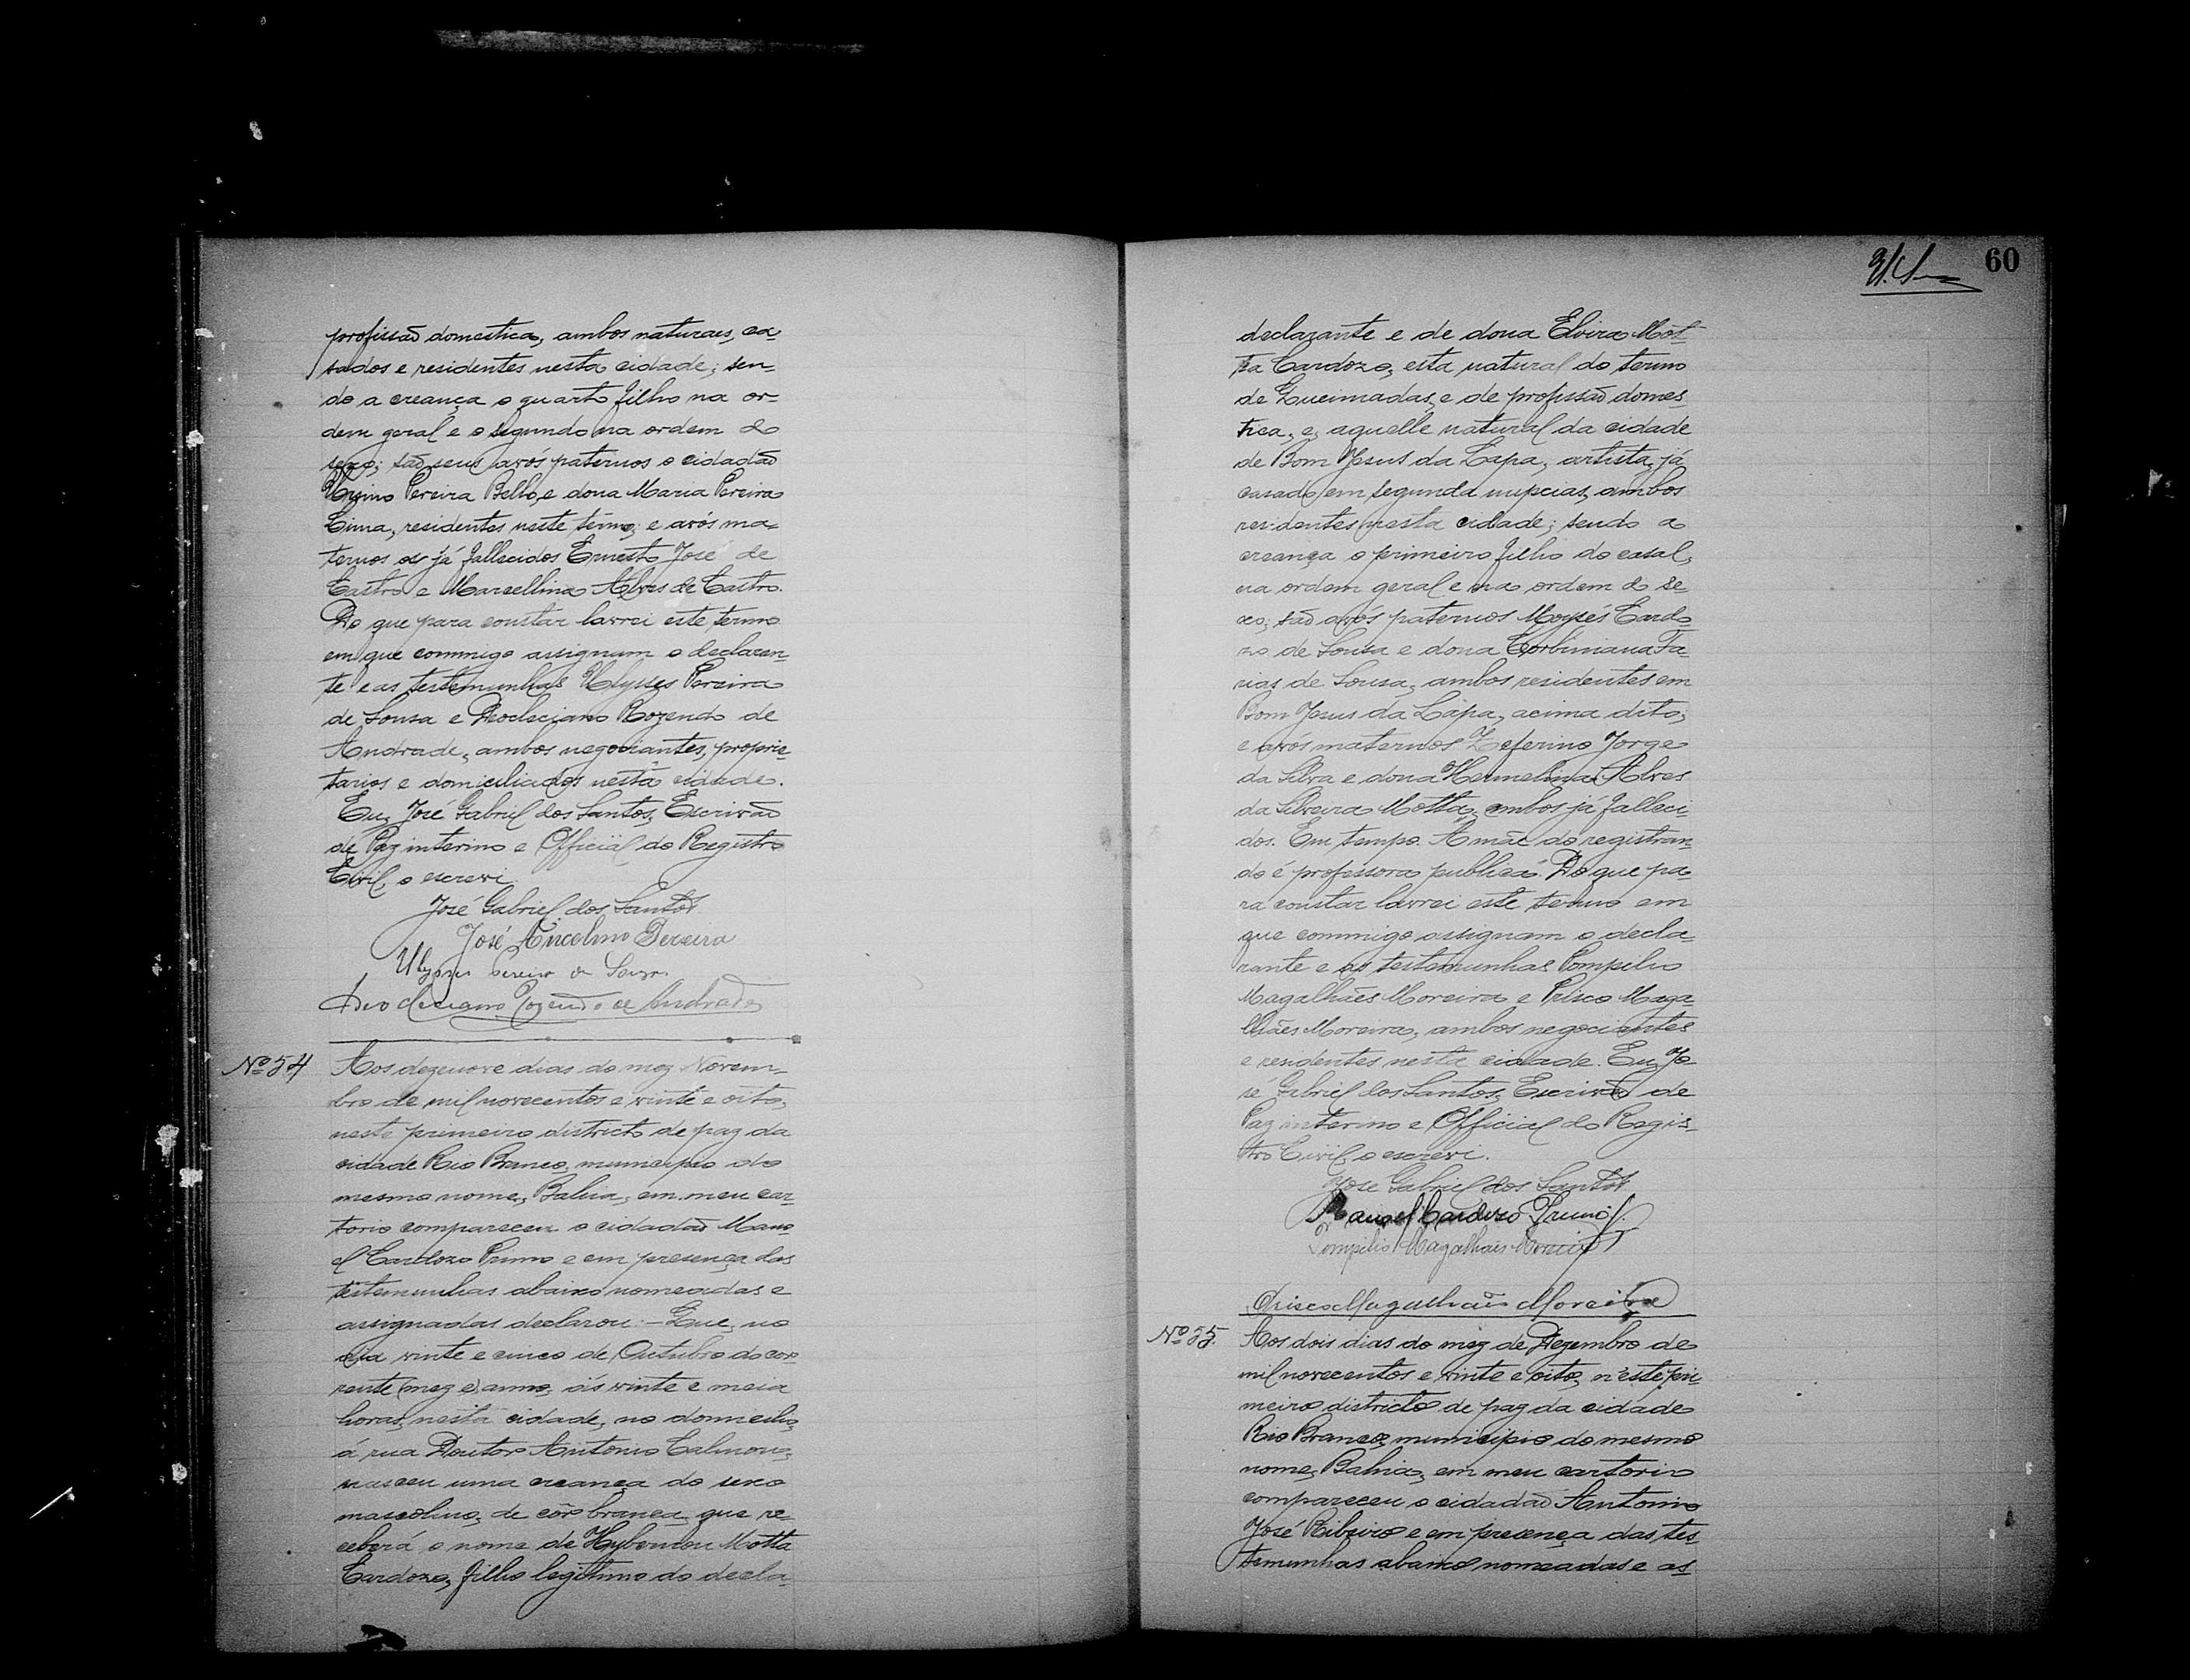 profissão domestica, ambos naturaes, ca-
sados e residentes nesta cidade; sen-
do a creança o quarto filho na or-
dem geral e o segundo na ordem do
sexo; são seus avós paternos o cidadão
Pereira Bello, e dona Maria Pereira
Lima, residentes neste termo; e avós ma-
ternos os já fallecidos Ernesto José de
Castro e Marcellina Alves de Castro.
Do que para constar lavrei este termo
em que commigo assignam o declaran-
te e as testemunhas Ulysses Pereira
de Sousa e Deocleciano Rozendo de
Andrade, ambos negociantes, proprie-
tarios e domiciliados nesta cidade.
Eu, José Gabriel dos Santos, Escrivão
de Paz interino e Official do Registro
Civil, o escrevi.
José Gabriel dos Santos
José Ancelmo Pereira
Ulysses Pereira de Souza.
Deocleciano Rozendo de Andrade
Nº 54
Aos dezenove dias do mez Novem-
bro de mil novecentos e vinte e oito,
neste primeiro districto de paz da
cidade Rio Branco, municipio do
mesmo nome, Bahia, em meu car-
torio compareceu o cidadão Mano-
el Cardozo Primo e em presença das
testemunhas abaixo nomeadas e
assignadas declarou: - Que, no
dia vinte e cinco de Outubro do cor-
rente (mez e) anno, ás vinte e meia
horas, nesta cidade, no domicilio,
á rua Doutor Antonio Calmon,
nasceu uma creança do sexo
masculino, de côr branca, que re-
ceberá o nome de Motta
Cardozo, filho legitimo do decla-
60
declarante e de dona Elvira Mot-
ta Cardozo, esta natural do termo
de Queimadas, e de profissão domes-
tica, e, aquelle natural da cidade
de Bom Jesus da Lapa, artista, já
casado em segunda nupcias, ambos
residentes nesta cidade; sendo a
creança o primeiro filho do casal,
na ordem geral e na ordem do se-
xo; são avós paternos Moysés Cardo-
zo de Sousa e dona Corbiniana Fa-
rias de Sousa, ambos residentes em
Bom Jesus da Lapa, acima dito,
e avós maternos Zeferino Jorge
da Silva e dona Hermelina Alves
da Silveira Motta, ambos já falleci-
dos. Em tempo. A mãe do registran-
do é professora publica. Do que pa-
ra constar lavrei este termo em
que commigo assignam o decla-
rante e as testemunhas Pompilio
Magalhães Moreira e Prisco Maga-
lhães Moreira, ambos negociantes
e residentes nesta cidade. Eu, Jo-
sé Gabriel dos Santos, Escrivão de
Paz interino e Official do Regis-
tro Civil, o escrevi.
José Gabriel dos Santos
Manoel Cardozo Primo
Pompilio Magalhães Moreira
Prisco Magalhães Moreira
Nº 55.
Aos dois dias do mez de Dezembro de
mil novecentos e vinte e oito, n'este pri-
meiro districto de paz da cidade
Rio Branco, municipio do mesmo
nome, Bahia, em meu cartorio
compareceu o cidadão Antonio
José Ribeiro e em presença das tes-
temunhas abaixo nomeadas e as-